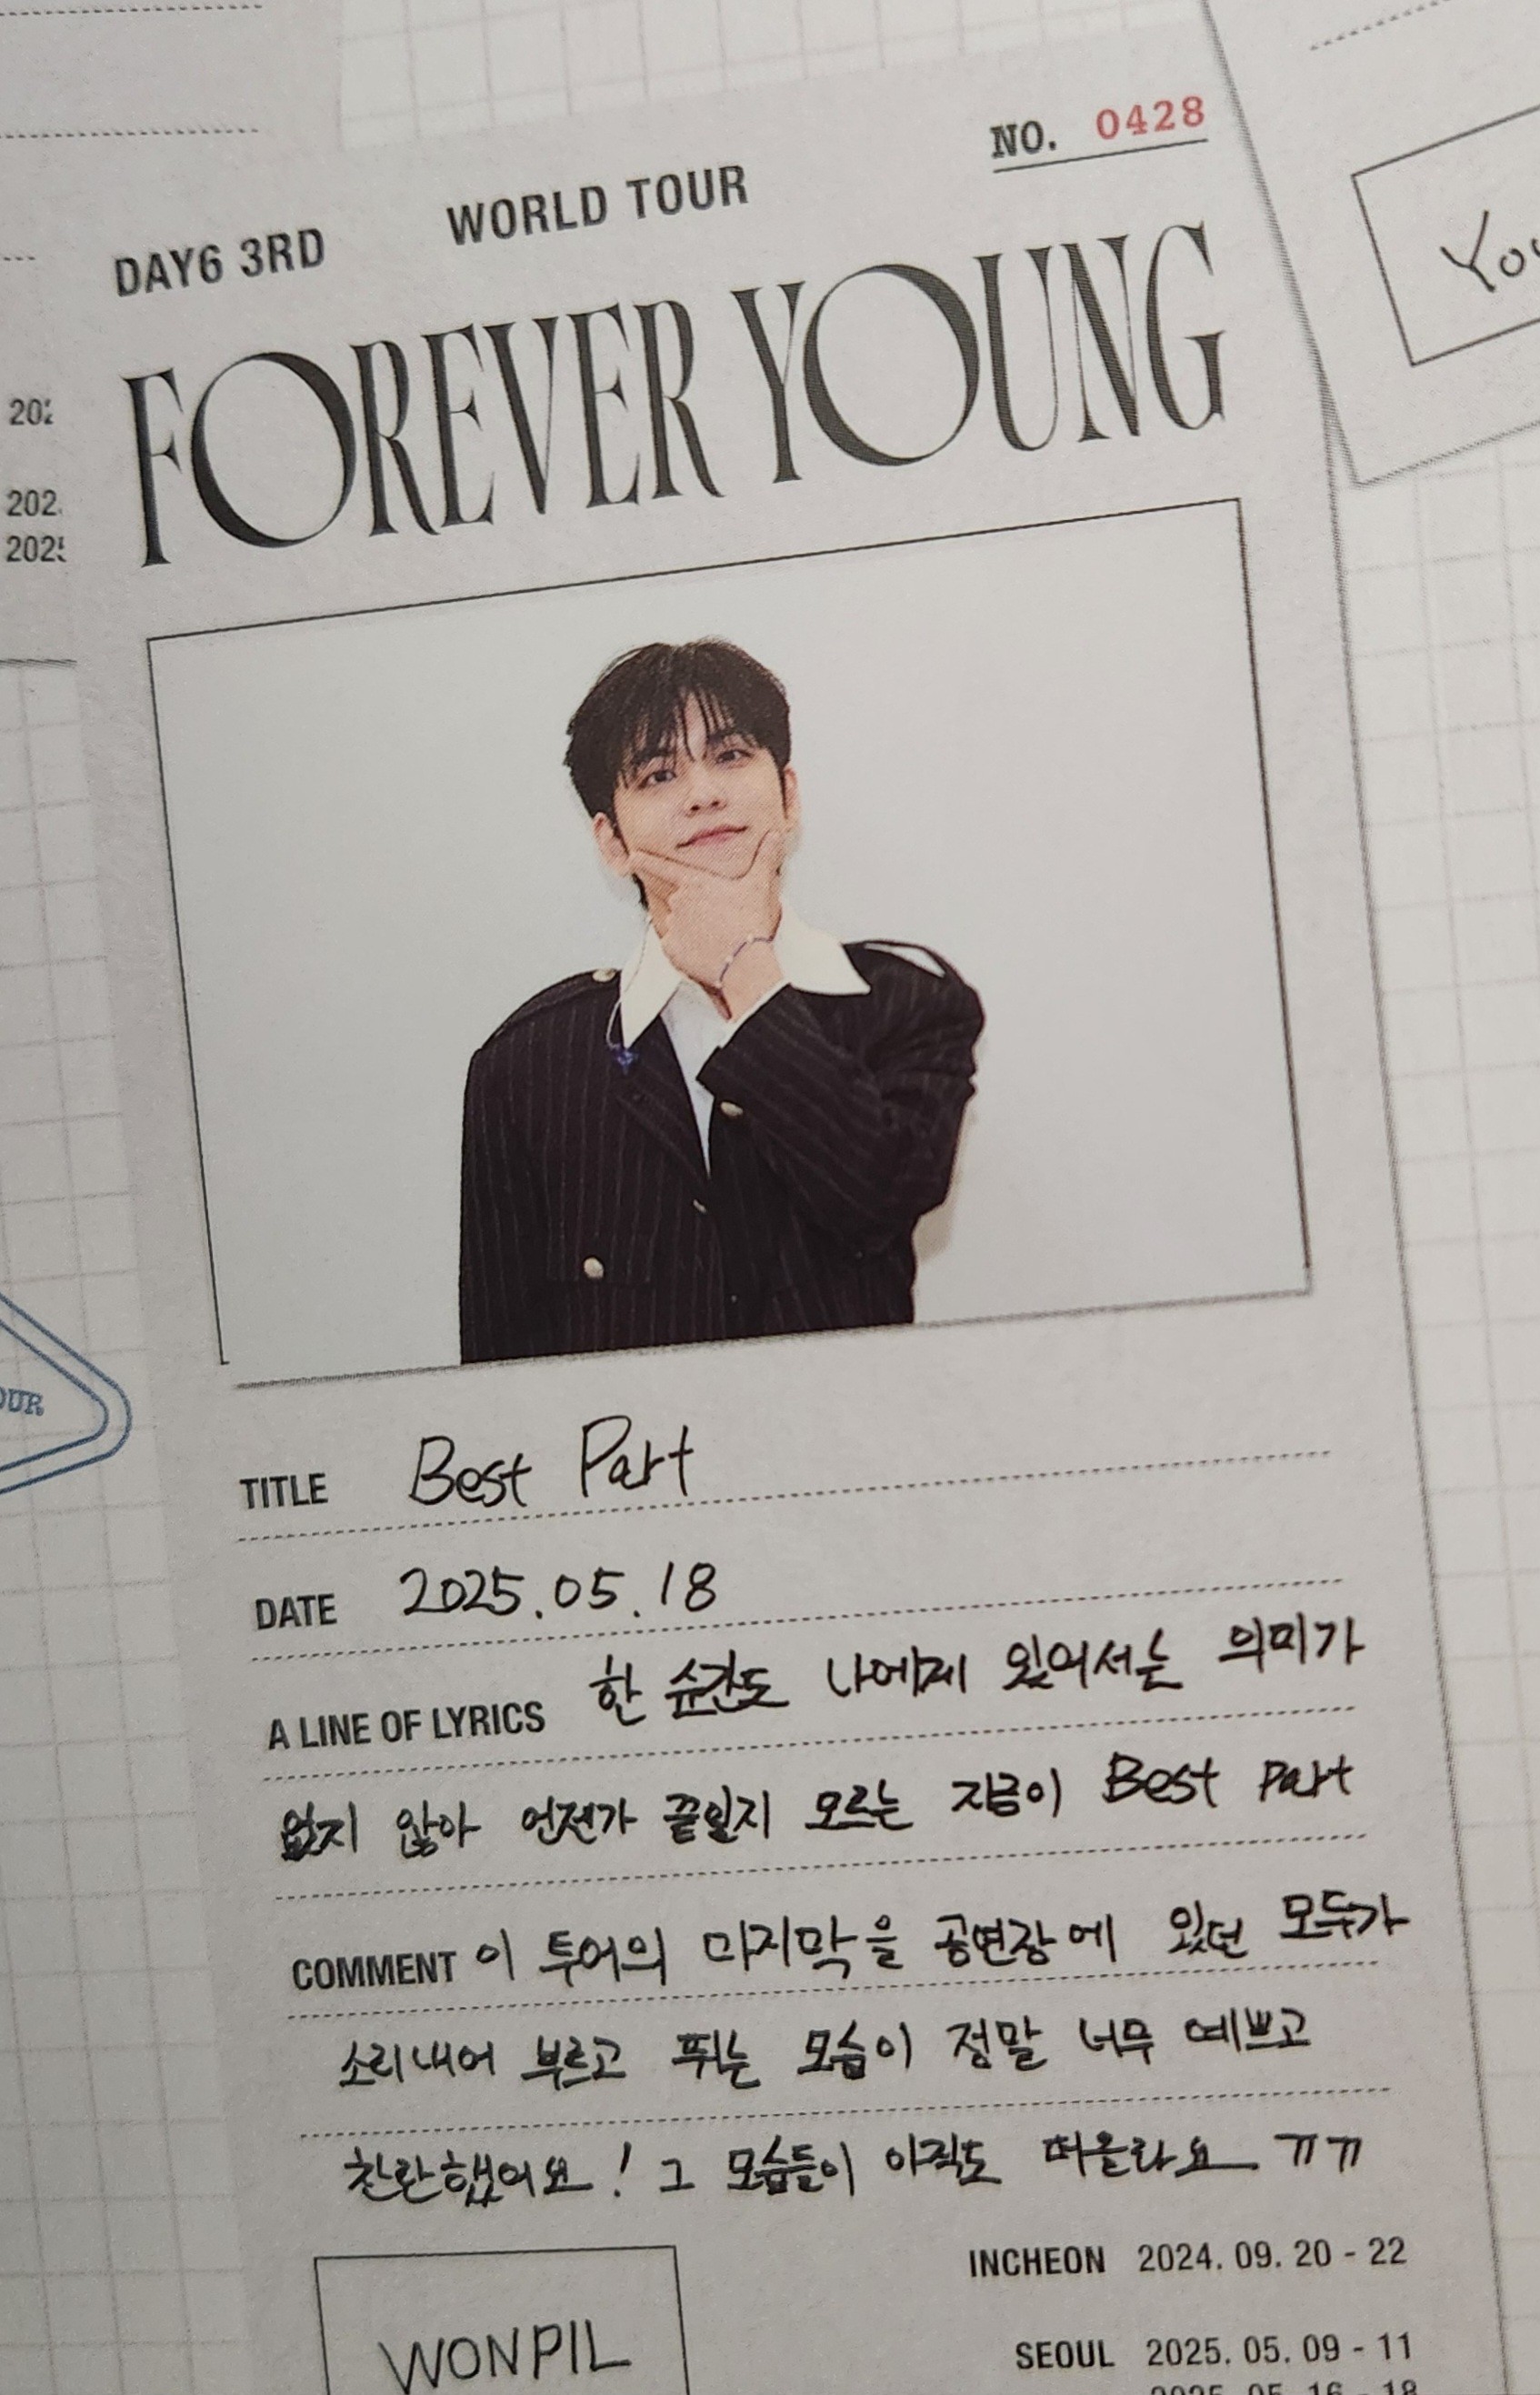 NO. 0428
DAY6 3RD WORLD TOUR
FOREVER YOUNG
TITLE Best Part
DATE 2025.05.18
A LINE OF LYRICS 한 순간도 나에게 있어서는 의미가
없지 않아 언젠가 끝일지 모르는 지금이 Best part
COMMENT 이 투어의 마지막을 공연장에 있던 모두가
소리내어 부르고 뛰는 모습이 정말 너무 예쁘고
찬란했어요! 그 모습들이 아직도 떠올라요 ㅠㅠ
WONPIL
INCHEON 2024. 09. 20 - 22
SEOUL 2025. 05. 09 - 11
2025. 05. 16 - 18